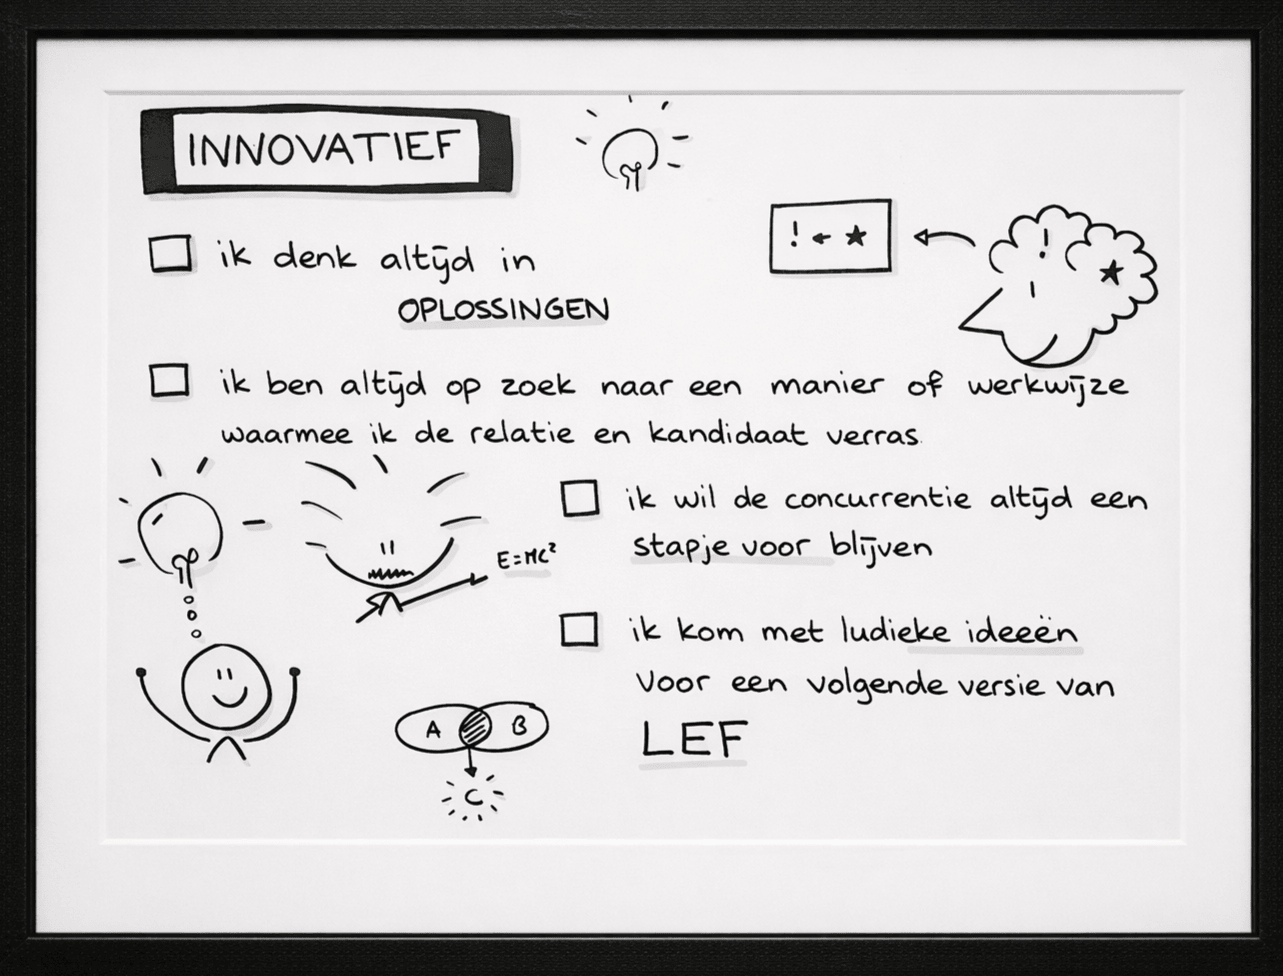 INNOVATIEF
! ← ★
!
★
ik denk altijd in
OPLOSSINGEN
ik ben altijd op zoek naar een manier of werkwijze
waarmee ik de relatie en kandidaat verras.
ik wil de concurrentie altijd een
stapje voor blijven
E=MC²
ik kom met ludieke ideeën
voor een volgende versie van
LEF
A B
C